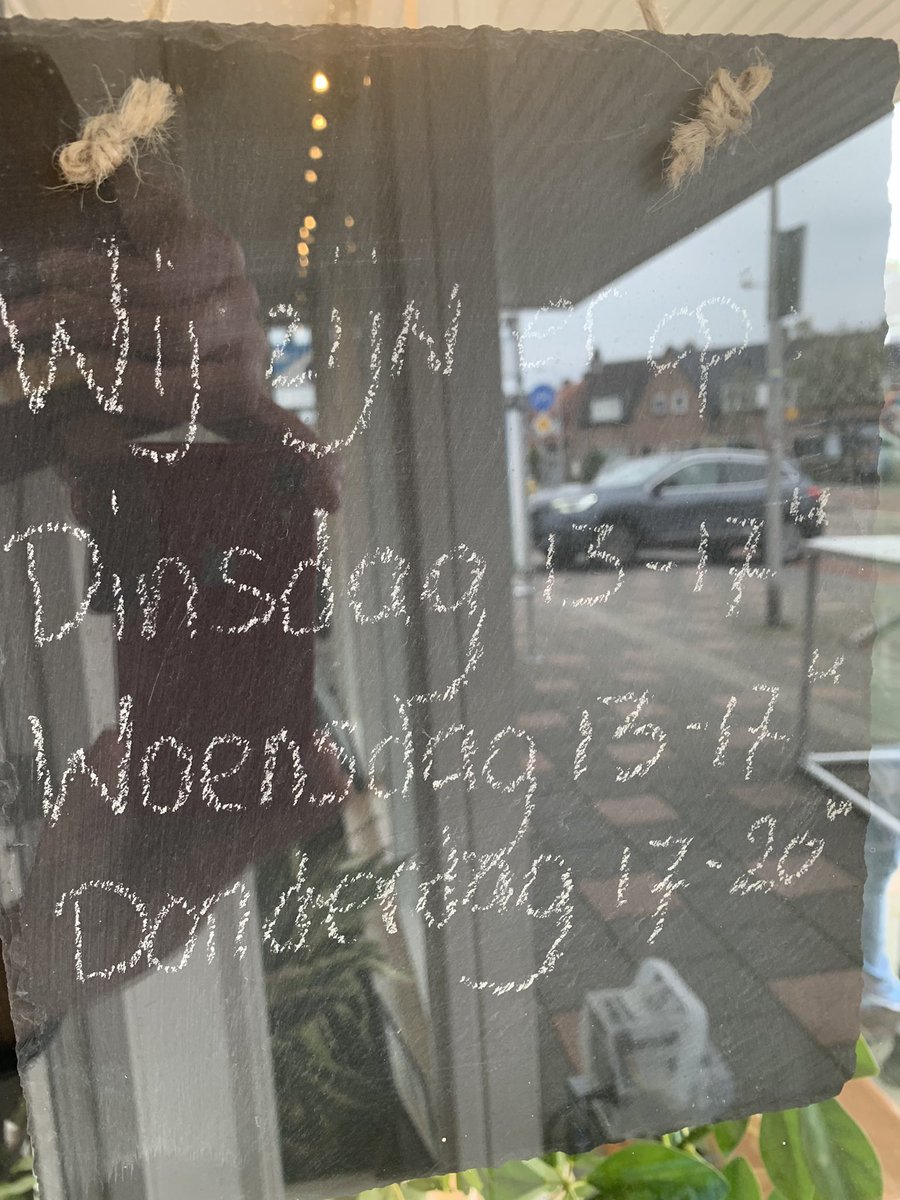 Wij zijn er op
Dinsdag 13-17 u
Woensdag 13-17 u
Donderdag 17-20 u